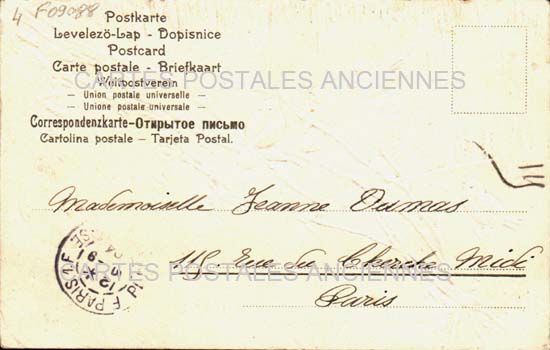 4 F09088
Postkarte
Levelezö-Lap - Dopisnice
Postcard
Carte postale - Briefkaart
CARTES POSTALES ANCIENNES
Weltpostverein
— Union postale universelle —
— Unione postale universale —
Correspondenzkarte-Открытое письмо
Cartolina postale – Tarjeta Postal.
Mademoiselle Jeanne Dumas
CARTES POSTALES ANCIENNES
115 Rue du Cherche Midi
CARTES POSTALES ANCIENNES
Paris
PARIS